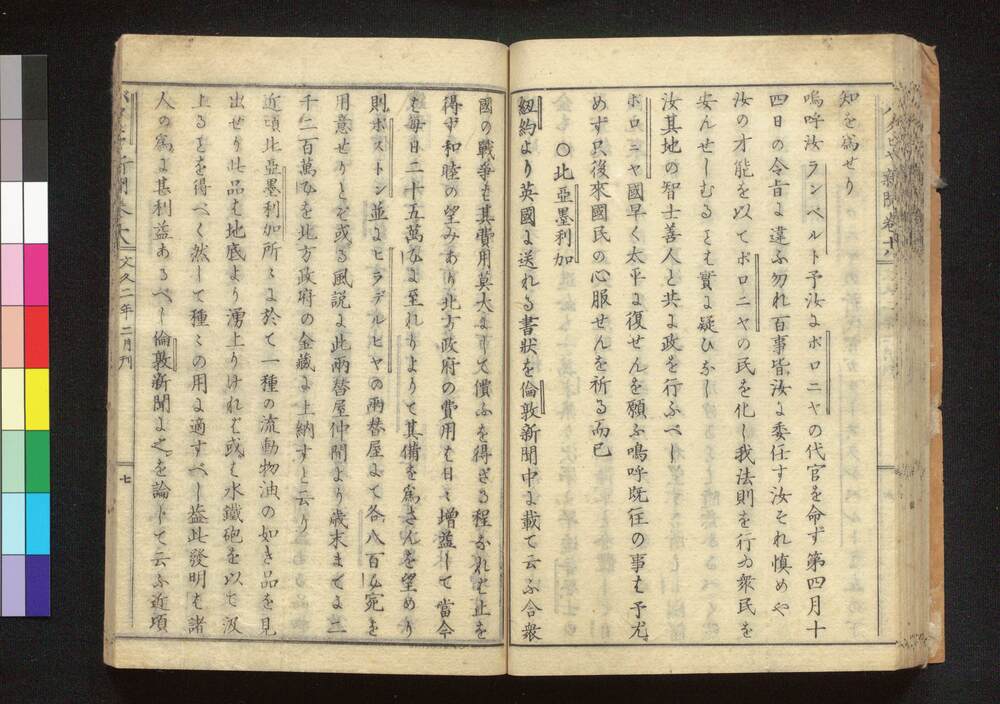 知を為せり
嗚呼汝ランベルト予汝にポロニヤの代官を命ず第四月十
四日の令旨に違ふ勿れ百事皆汝に委任す汝それ慎めや
汝の才能を以てポロニヤの民を化し我法則を行ゐ衆民を
安んせしむるとも實に疑ひなし
汝其地の智士善人と共に政を行ふべし
ポロニヤ國早く太平に復せんを願ふ嗚呼既往の事も予尤
めず只後來國民の心服せんを祈る而已
○北亞墨利加
紐約より英国に送れる書狀を倫敦新聞中に載て云ふ合衆
國の戰爭も其費用莫大にして償ふを得ざる程なれども止を
得ず和睦の望みあり北方政府の費用も日々增益して當今
も每日二十五萬ひに至れりよりて其備を為さんを望めり
則ボストン並にヒラデルヒヤの兩替屋にて各八百ひ宛を
用意せりとぞ或る風說に此兩替屋仲間より歲末までに二
千二百萬ひを北方政府の金藏に上納すと云り
近頃北亞墨利加所々に於て一種の流動物油の如き品を見
出せり此品も地底より湧上りければ或も水鐵砲を以て汲
上るとを得べく然して種々の用に適すべし蓋此發明も諸
人の為に甚利益あるべし倫敦新聞に之を論して云ふ近頃
文久二年二月刊
七